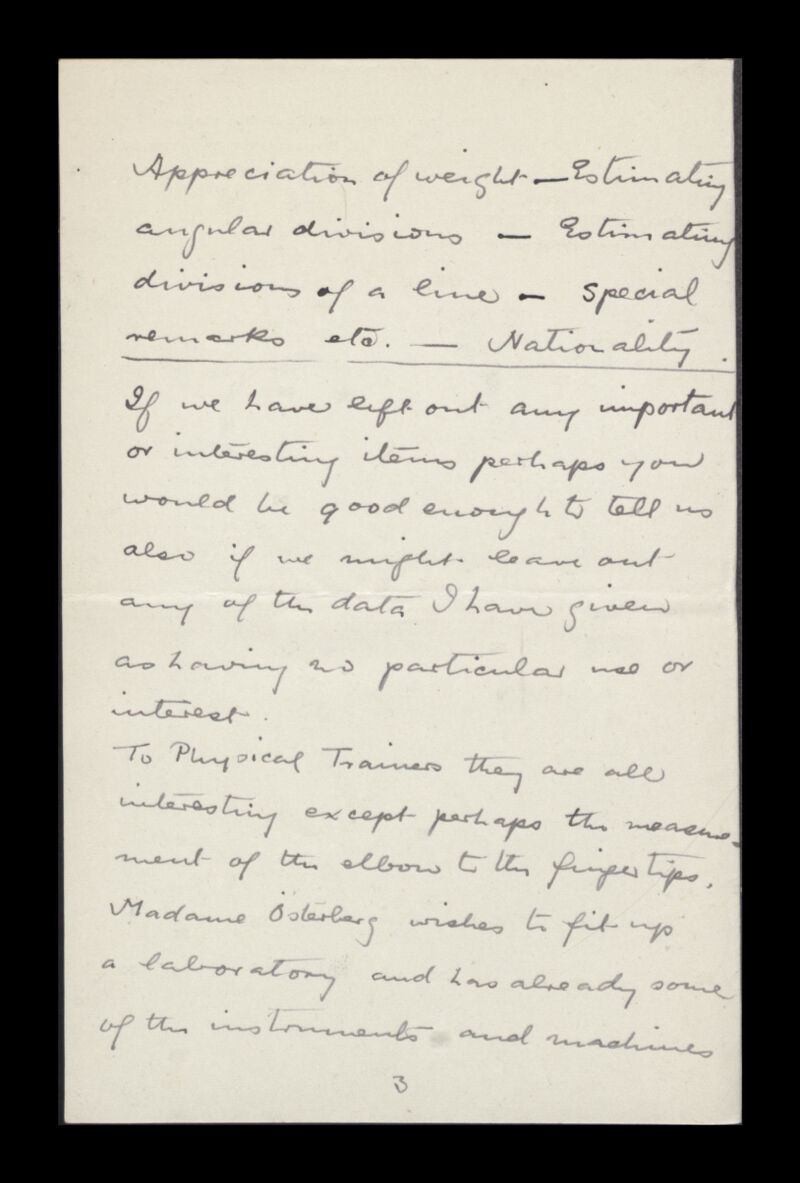 Appreciation of weight — Estimating
angular divisions — Estimating
divisions of a line — special
remarks etc. — Nationality.
If we have left out any important
or interesting items perhaps you
would be good enough to tell us
also if we might leave out
any of the data I have given
as having no particular use or
interest.
To Physical Trainers they are all
interesting except perhaps the measure-
ment of the elbow to the finger tips.
Madame Österberg wishes to fit up
a laboratory and has already some
of the instruments and machines
3